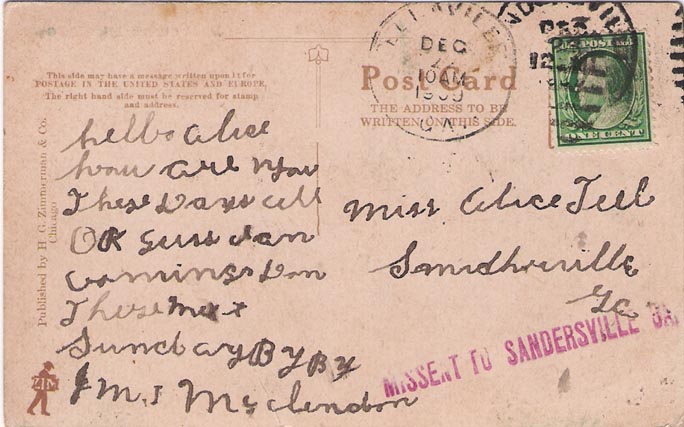 This side may have a message written upon it for
POSTAGE IN THE UNITED STATES AND EUROPE.
The right hand side must be reserved for stamp
and address.
Post Card
THE ADDRESS TO BE
WRITTEN ON THIS SIDE.
DEC
10AM
1909
GA.
DEC
U.S. POSTAGE
ONE CENT
Published by H. G. Zimmerman & Co.
Chicago
hello alice
how are you
These Days all
OK
coming Down
These next
Sunday By By
J M. J Mcclendon
Miss Alice Tell
Smidhsville
Ga
MISSENT TO SANDERSVILLE GA.
ZIM